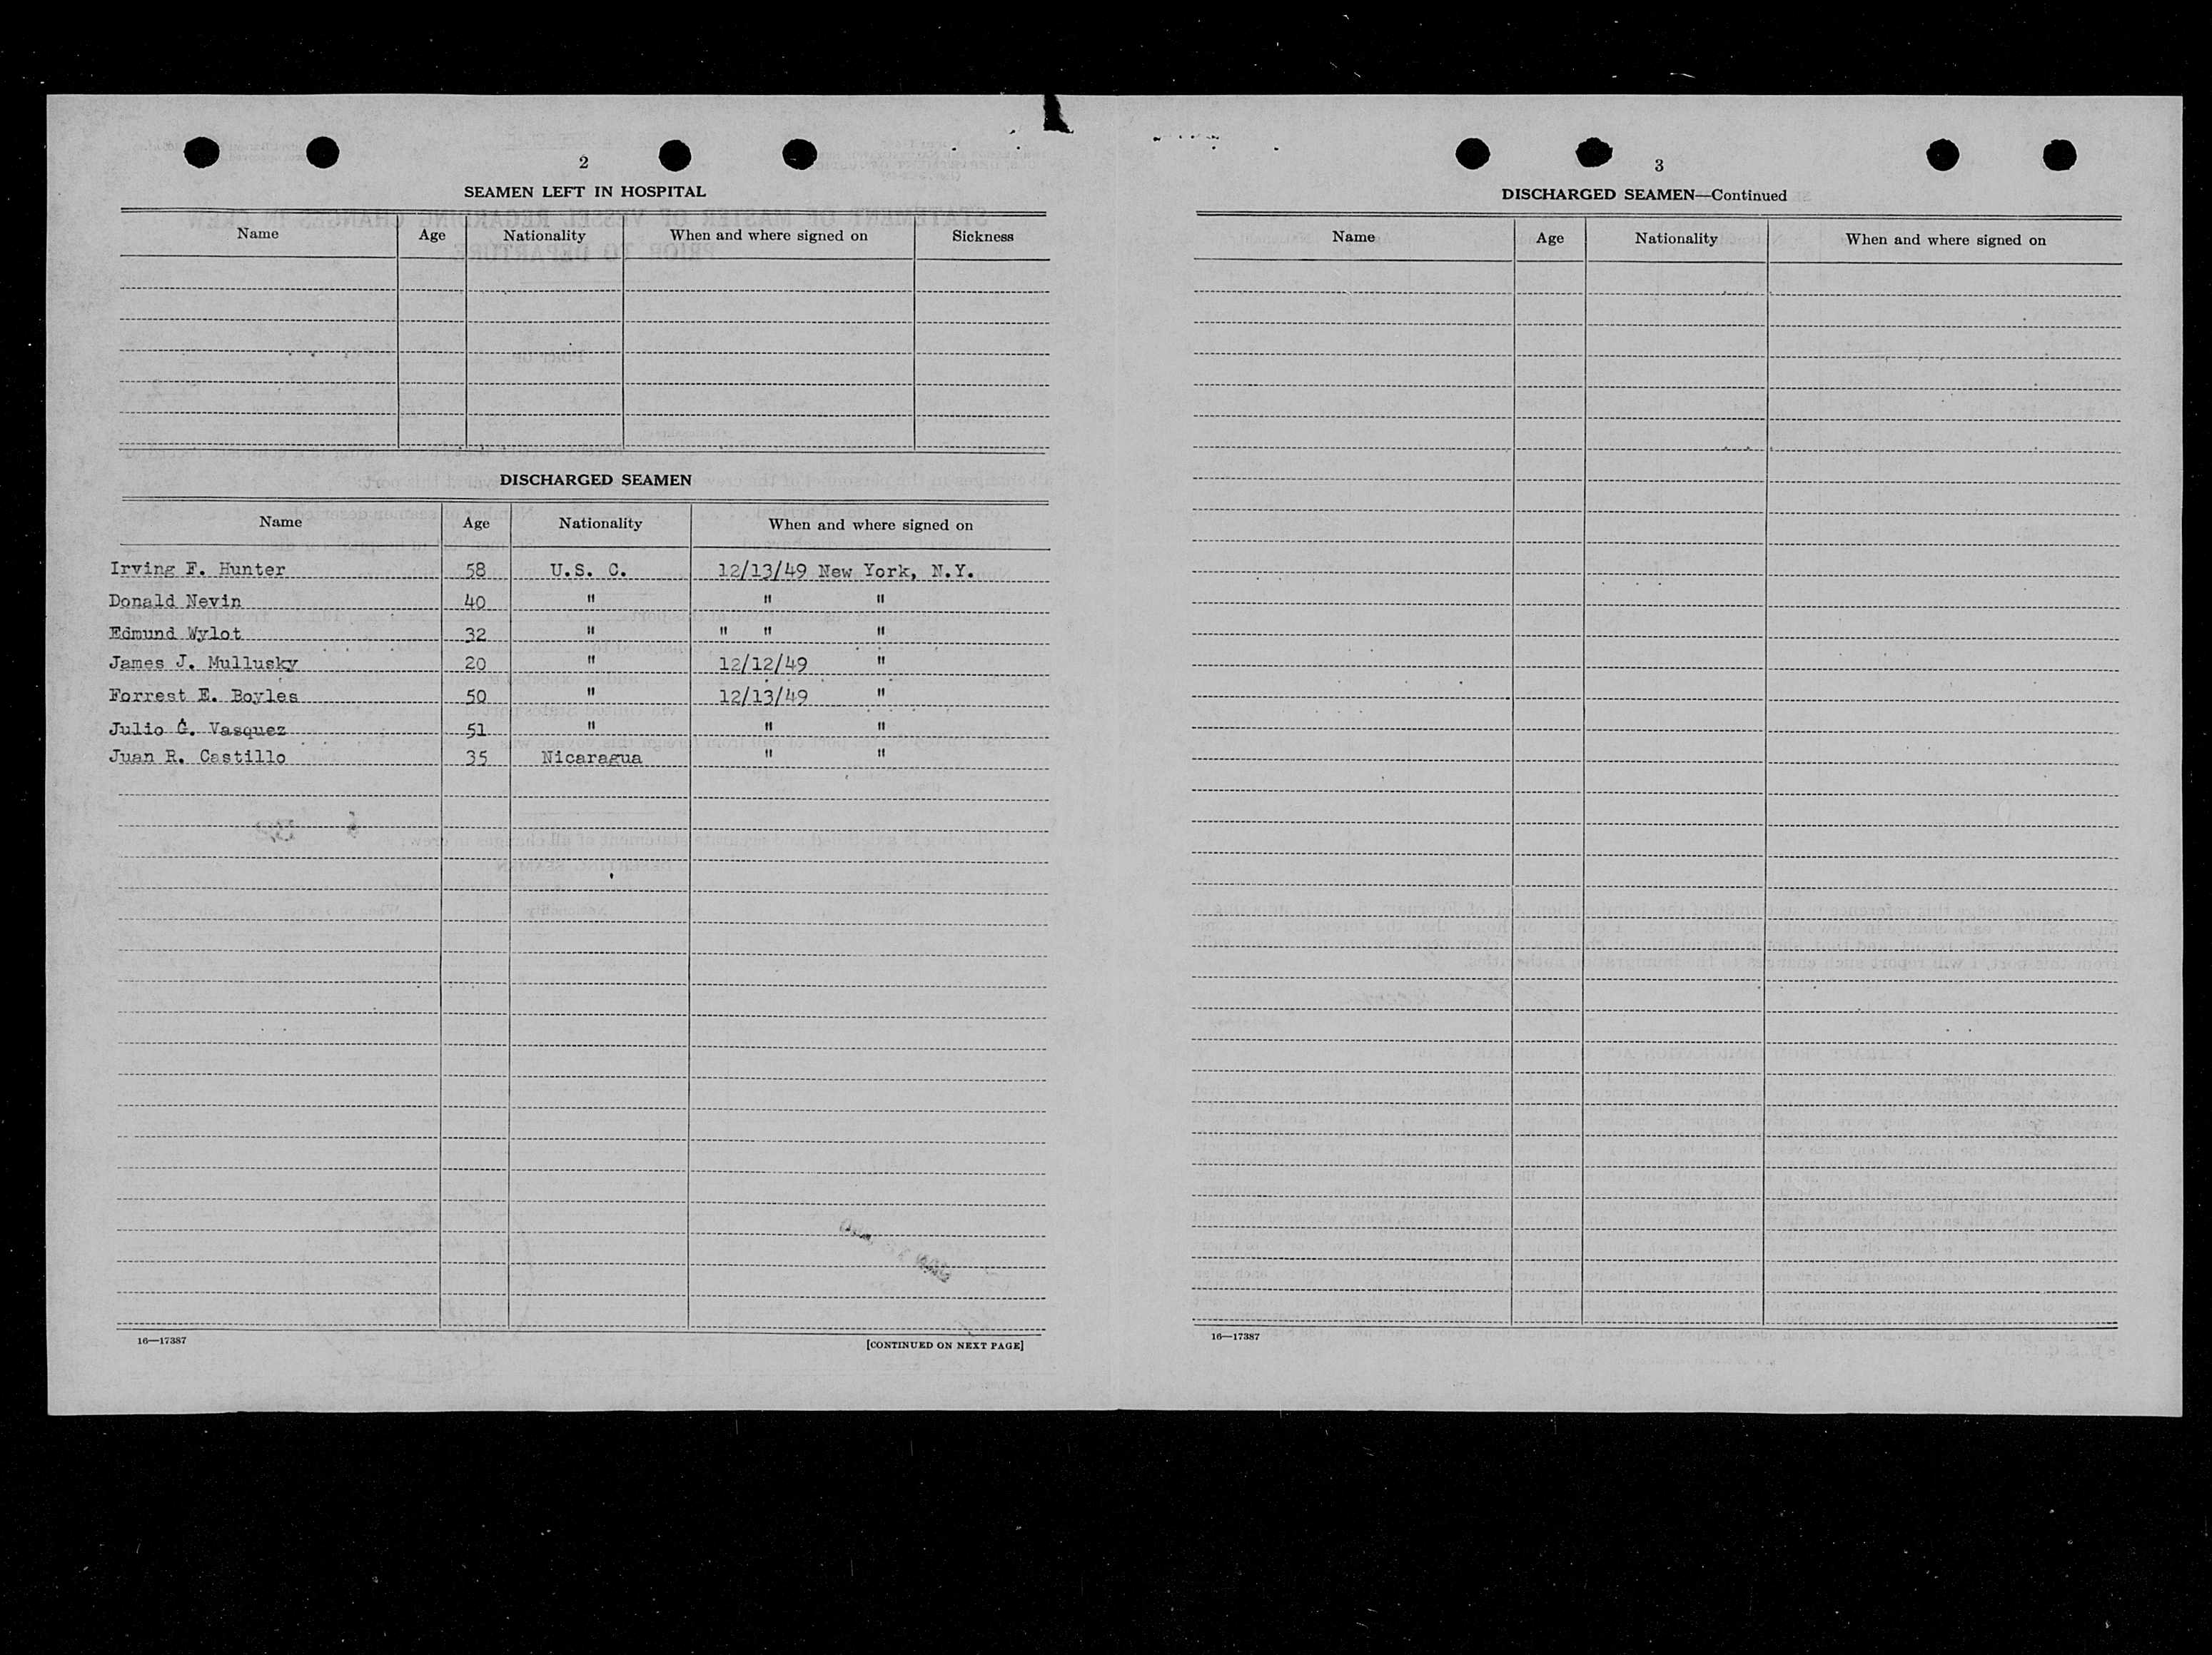 2
SEAMEN LEFT IN HOSPITAL
Name Age Nationality When and where signed on Sickness
DISCHARGED SEAMEN
Name Age Nationality When and where signed on
Irving F. Hunter 58 U.S. C. 12/13/49 New York, N.Y.
Donald Nevin 40 " " "
Edmund Wylot 32 " " " "
James J. Mullusky 20 " 12/12/49 "
Forrest E. Boyles 50 " 12/13/49 "
Julio G. Vasquez 51 " " "
Juan R. Castillo 35 Nicaragua " "
16—17387
[CONTINUED ON NEXT PAGE]
3
DISCHARGED SEAMEN—Continued
Name Age Nationality When and where signed on
16—17387